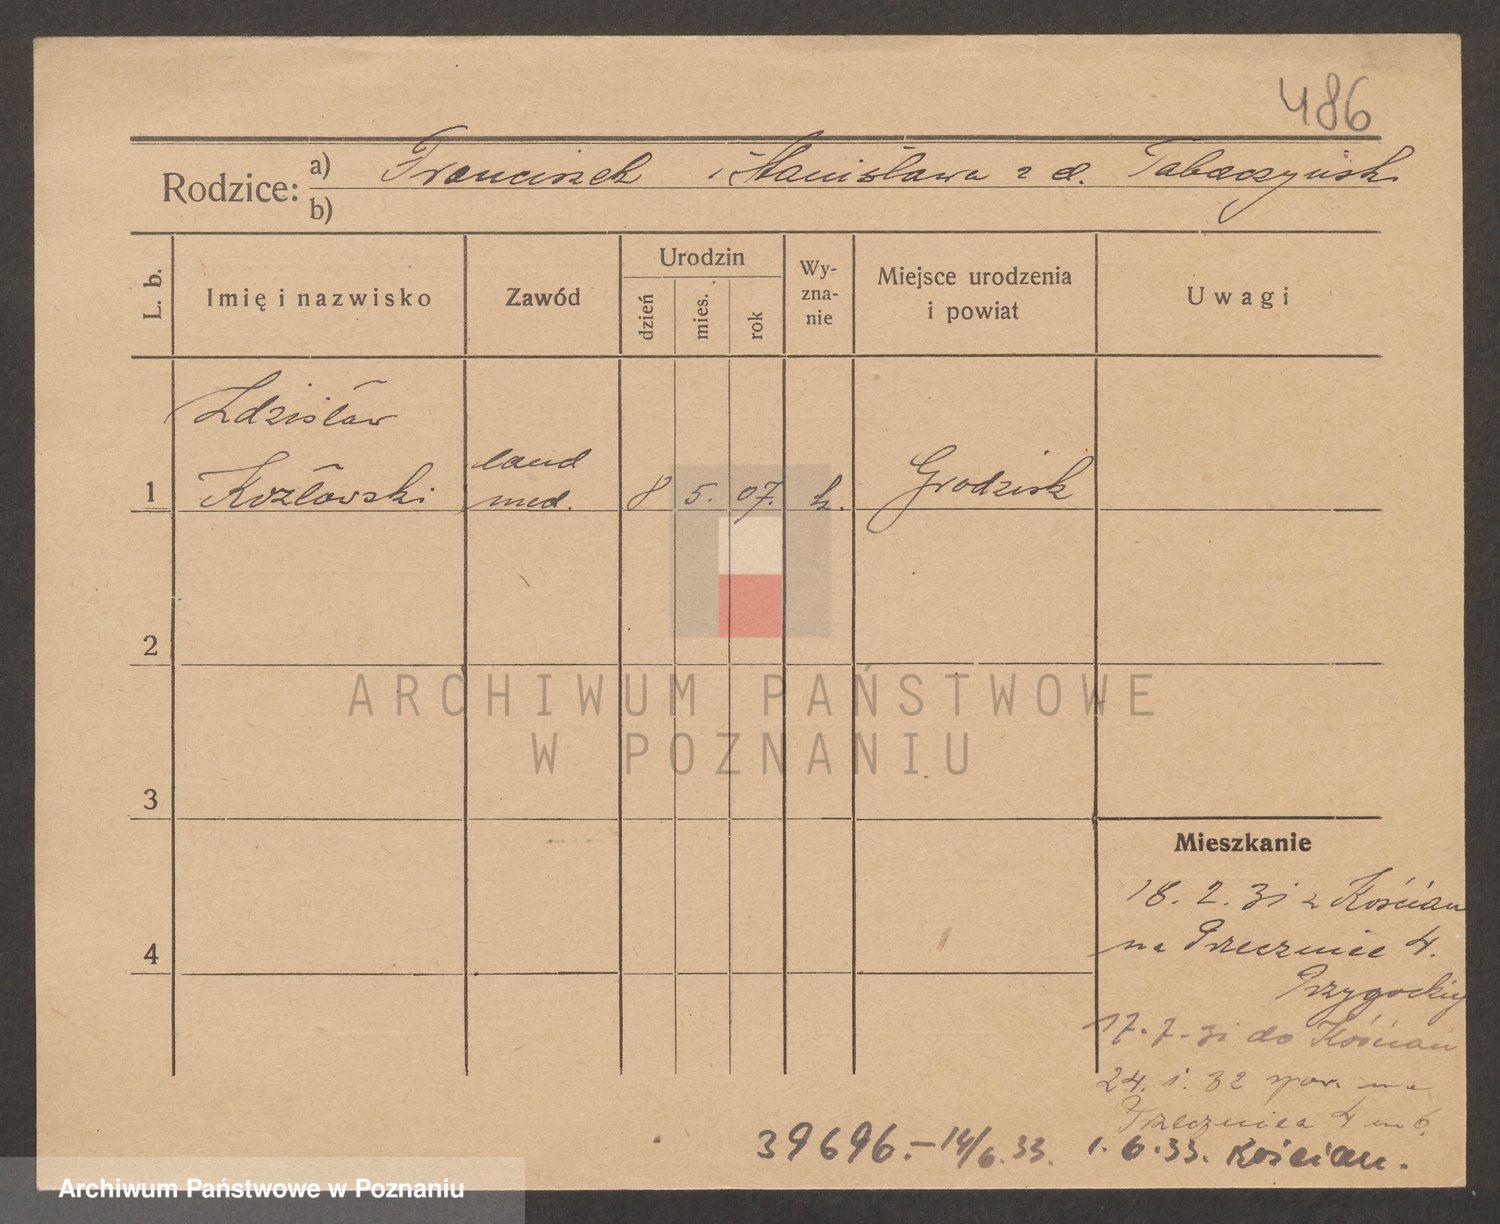 486
Rodzice: a) Franciszek i Stanisława z d. Tabaczyńsk.
b)
L. b.
Imię i nazwisko
Zawód
Urodzin
dzień
mies.
rok
Wy-
zna-
nie
Miejsce urodzenia
i powiat
Uwagi
Zdzisław
cand
1 Kozłowski med. 8 5. 07. k. Grodzisk
2
ARCHIWUM PAŃSTWOWE
W POZNANIU
3
Mieszkanie
18. 2. 31 z Kościan
4
na Przecznice 4.
17. 7. 31 do Kościan
24. 1. 32 spow. na
Przecznica 4 m 6.
39696.- 14/6.33. 1. 6. 33. Kościan.
Archiwum Państwowe w Poznaniu